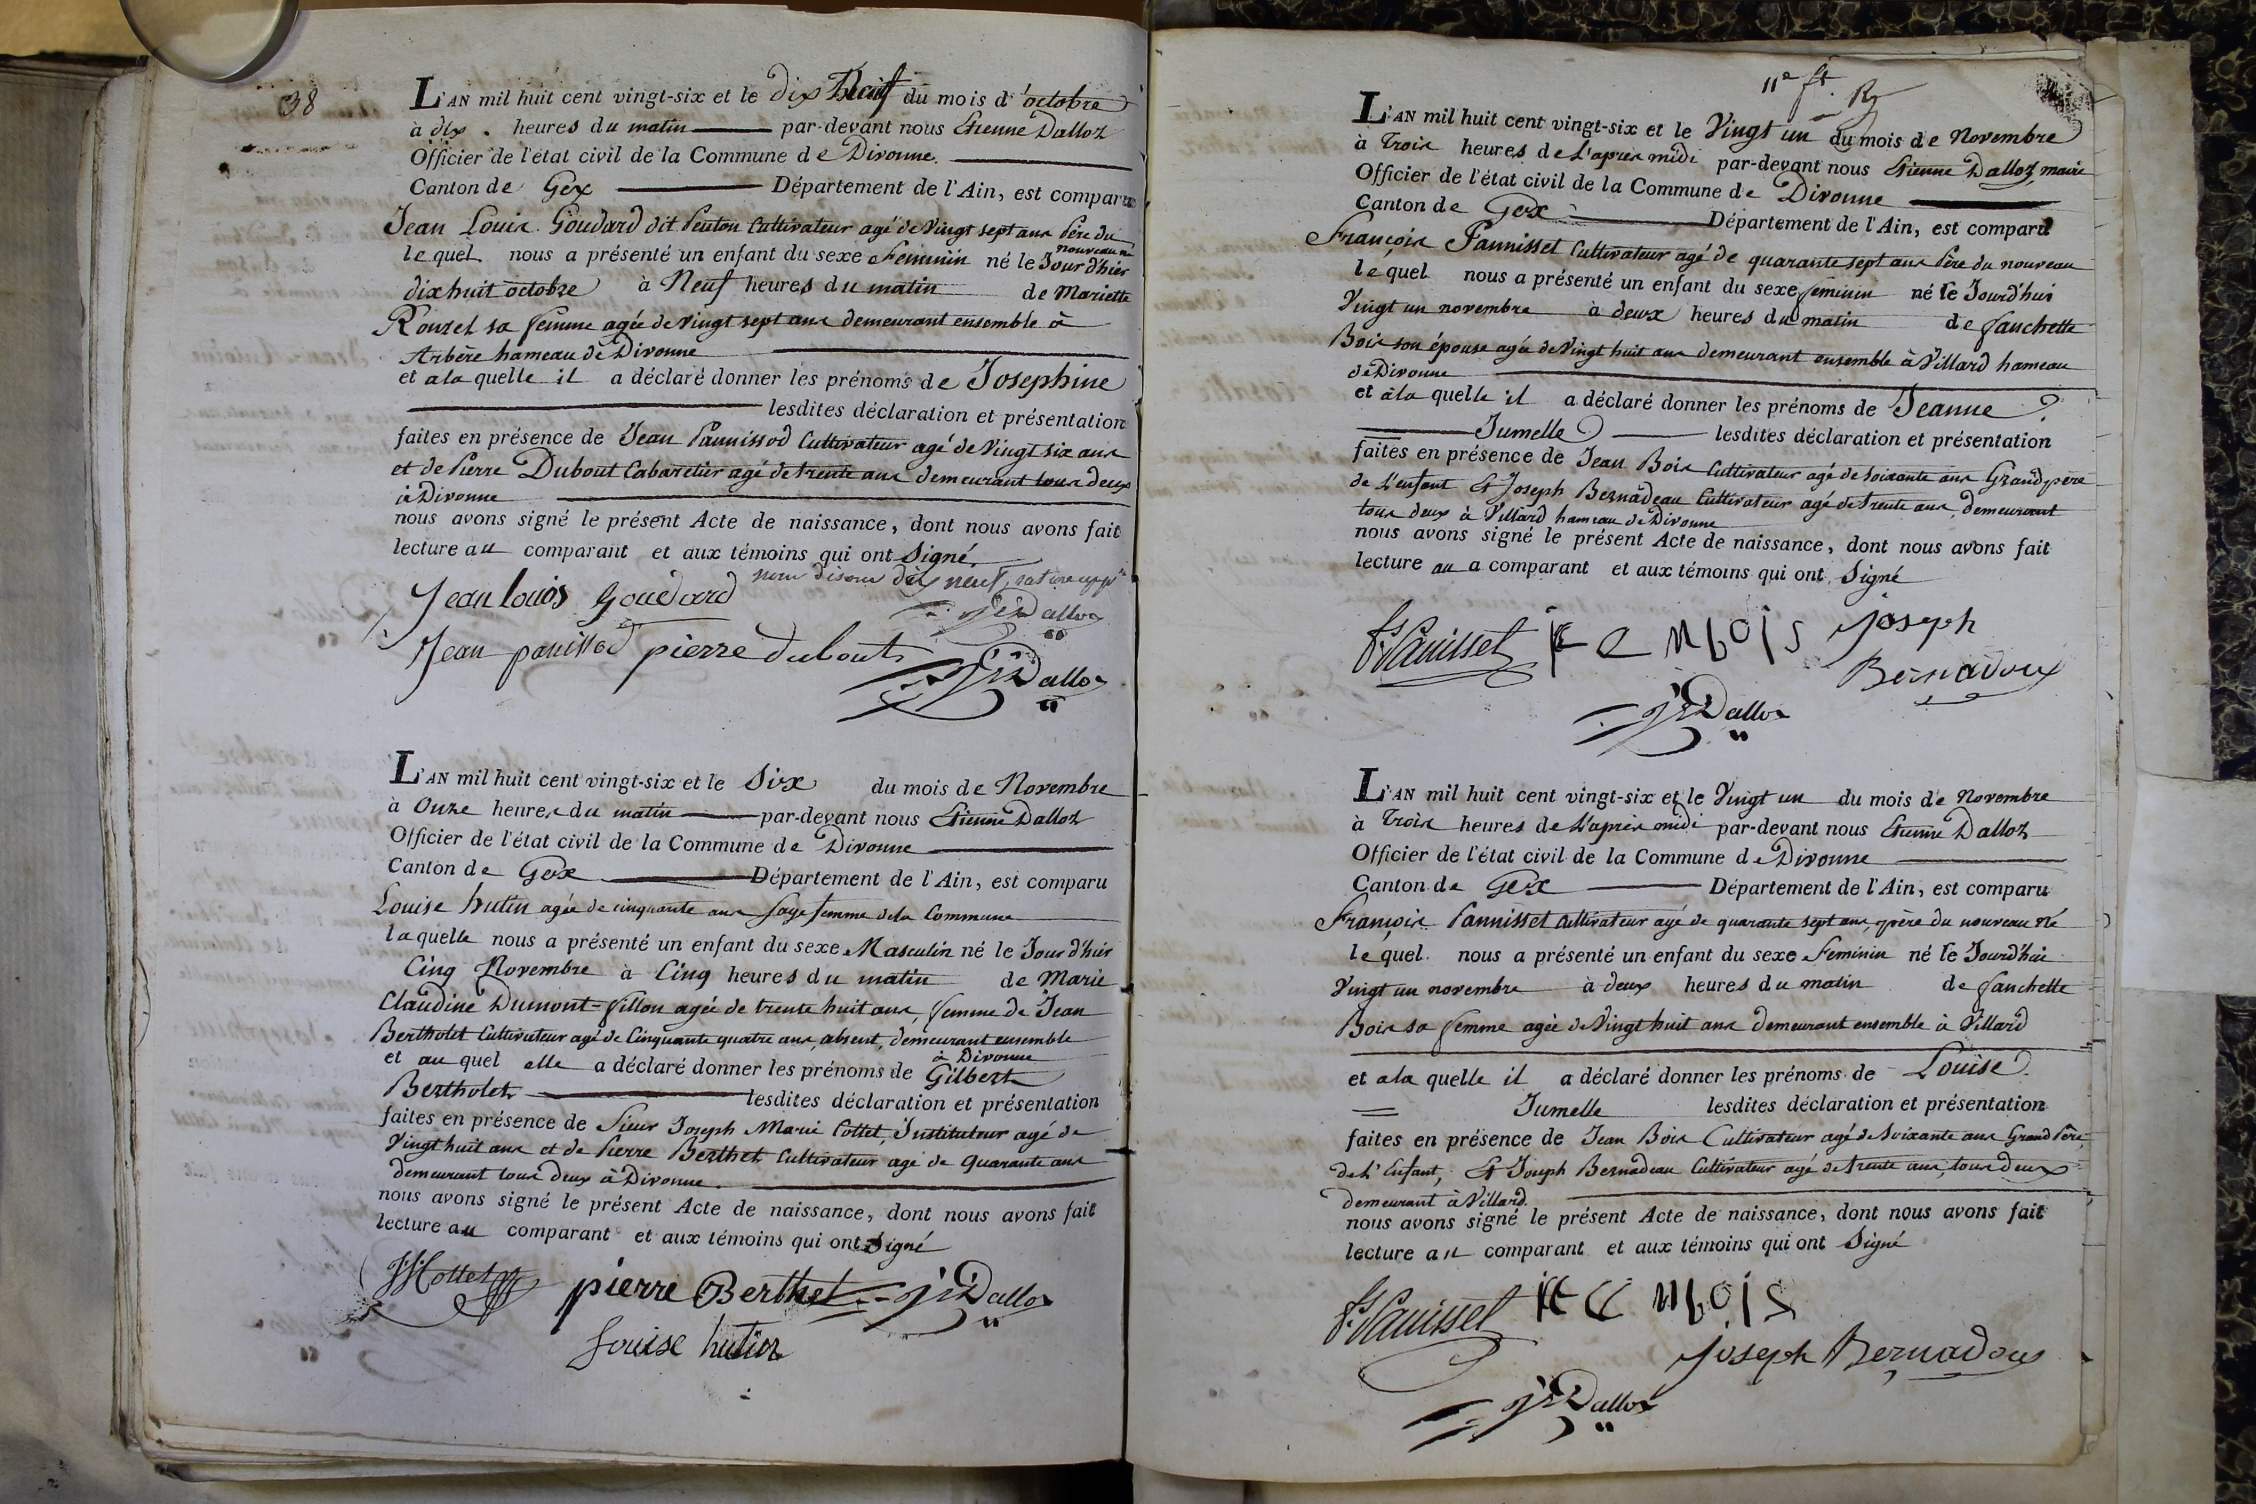 38
L'AN mil huit cent vingt-six et le dix Neuf du mois d'octobre
à dix heures du matin par-devant nous Etienne Dalloz
Officier de l'état civil de la Commune de Divonne.
Canton de Gex Département de l'Ain, est comparu
Jean Louis Goudard dit Penton Cultivateur agé de Vingt sept ans Père du
nouveau né
le quel nous a présenté un enfant du sexe Feminin né le Jourd'hier
dix huit octobre à Neuf heures du matin de Mariette
Rouzet sa femme agée de vingt sept ans demeurant ensemble à
Arbère hameau de Divonne
et a la quelle il a déclaré donner les prénoms de Josephine
lesdites déclaration et présentation
faites en présence de Jean Pannissod Cultivateur agé de Vingt six ans
et de Pierre Dubout Cabaretier agé de trente ans demeurant tous deux
à Divonne
nous avons signé le présent Acte de naissance, dont nous avons fait
lecture au comparant et aux témoins qui ont Signé.
nous disons dix neuf, rature app
Jean louis Goudard
Jn Dalloz
Jean panissod pierre dubout
Jn Dalloz
L'AN mil huit cent vingt-six et le Six du mois de Novembre
à Onze heures du matin par-devant nous Etienne Dalloz
Officier de l'état civil de la Commune de Divonne
Canton de Gex Département de l'Ain, est comparu
Louise hutin agée de cinquante ans sage femme de la Commune
la quelle nous a présenté un enfant du sexe Masculin né le Jour d'hier
Cinq Novembre à Cinq heures du matin de Marie
Claudine Dumont-fillon agée de trente huit ans, femme de Jean
Bertholet Cultivateur agé de Cinquante quatre ans, absent, demeurant ensemble
à Divonne
et au quel elle a déclaré donner les prénoms de Gilbert
Bertholet lesdites déclaration et présentation
faites en présence de Sieur Joseph Marie Cottet, Instituteur agé de
Vingt huit ans et de Pierre Berthet Cultivateur agé de Quarante ans
demeurant tous deux à Divonne.
nous avons signé le présent Acte de naissance, dont nous avons fait
lecture au comparant et aux témoins qui ont Signé
JM Cottet pierre Berthet Jn Dalloz
Louise hutin
11e ft. R
L'AN mil huit cent vingt-six et le Vingt un du mois de Novembre
à Trois heures de L'après midi par-devant nous Etienne Dalloz, maire
Officier de l'état civil de la Commune de Divonne
Canton de Gex Département de l'Ain, est comparu
François Pannisset Cultivateur agé de quarante sept ans Père du nouveau
le quel nous a présenté un enfant du sexe feminin né le Jourd'hui
Vingt un novembre à deux heures du matin de fanchette
Bois son épouse agée de Vingt huit ans demeurant ensemble à Villard hameau
de Divonne
et à la quelle il a déclaré donner les prénoms de Jeanne
Jumelle lesdites déclaration et présentation
faites en présence de Jean Bois Cultivateur agé de Soixante ans Grand père
de L'enfant Et Joseph Bernadeau Cultivateur agé de trente ans, demeurant
tous deux à Villard hameau de Divonne
nous avons signé le présent Acte de naissance, dont nous avons fait
lecture au a comparant et aux témoins qui ont Signé
fs. Panisset bois Joseph
Bernadoux
Jn Dalloz
L'AN mil huit cent vingt-six et le Vingt un du mois de Novembre
à Trois heures de L'après midi par-devant nous Etienne Dalloz
Officier de l'état civil de la Commune de Divonne
Canton de Gex Département de l'Ain, est comparu
François Pannisset Cultivateur agé de quarante sept ans, père du nouveau Né
le quel nous a présenté un enfant du sexe Feminin né le Jourd'hui
Vingt un novembre à deux heures du matin de fanchette
Bois sa femme agée de Vingt huit ans demeurant ensemble à Villard
et a la quelle il a déclaré donner les prénoms de Louise
Jumelle lesdites déclaration et présentation
faites en présence de Jean Bois Cultivateur agé de Soixante ans Grand Père,
de L'Enfant, Et Joseph Bernadeau Cultivateur agé de trente ans, tous deux
demeurant à Villard.
nous avons signé le présent Acte de naissance, dont nous avons fait
lecture au comparant et aux témoins qui ont Signé
fs. Panisset bois
Joseph Bernadoux
Jn Dalloz